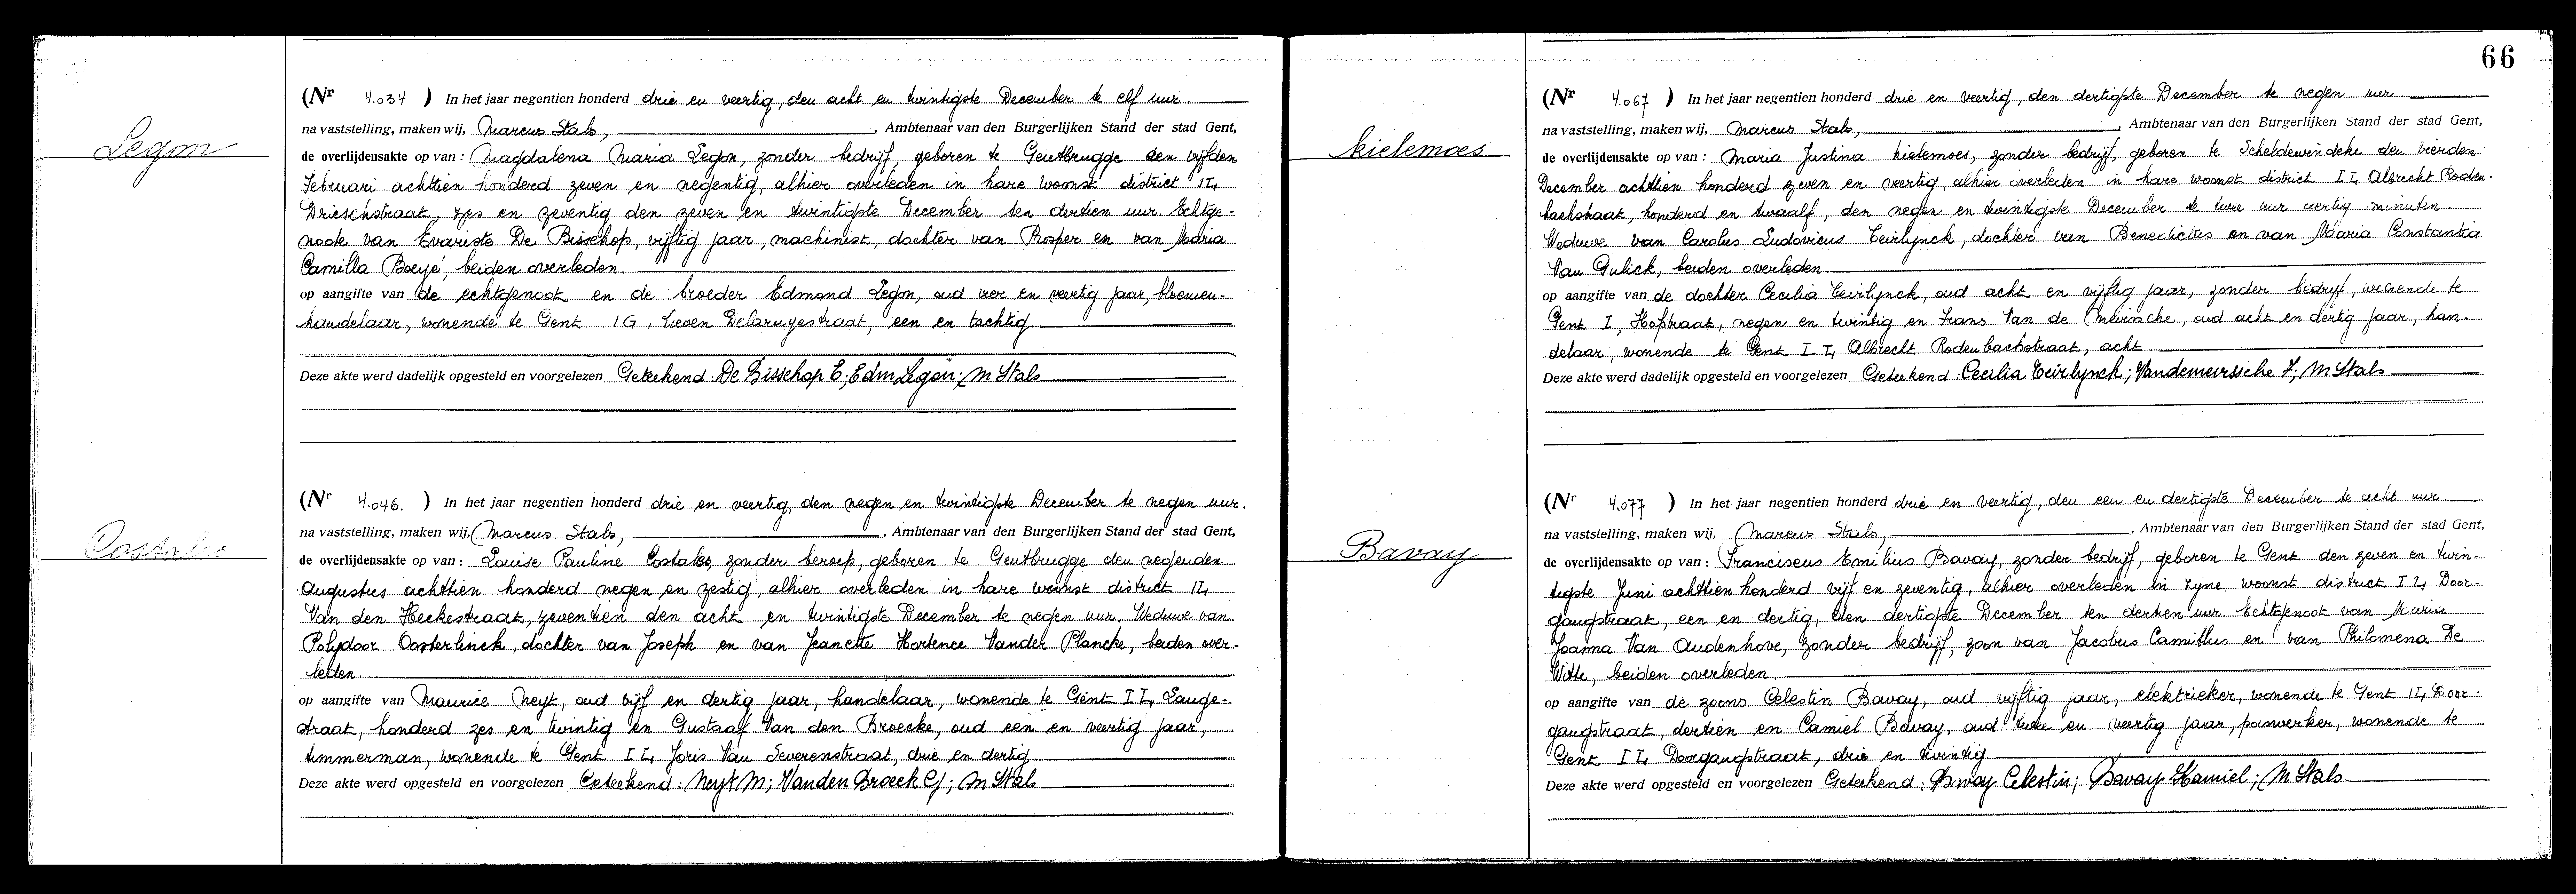 Legon
(Nr 4.034 ) In het jaar negentien honderd drie en veertig, den acht en twintigste December te elf uur
na vaststelling, maken wij, Marcus Stals, , Ambtenaar van den Burgerlijken Stand der stad Gent,
de overlijdensakte op van : Magdalena Maria Legon, zonder bedrijf, geboren te Gentbrugge den vijfden
Februari achttien honderd zeven en negentig, alhier overleden in hare woonst district I4
Drieschstraat, zes en zeventig den zeven en twintigste December ten dertien uur. Echtge-
noote van Evariste De Bisschop, vijftig jaar, machinist, dochter van Prosper en van Maria
Camilla Boeyé, beiden overleden.
op aangifte van de echtgenoot en de broeder Edmond Legon, oud vier en veertig jaar, bloemen-
handelaar, wonende te Gent IG, Lieven Delaruyestraat, een en tachtig
Deze akte werd dadelijk opgesteld en voorgelezen Geteekend: De Bisschop E; Edm Legon; M Stals
Costales
(Nr 4.046. ) In het jaar negentien honderd drie en veertig, den negen en twintigste December te negen uur.
na vaststelling, maken wij, Marcus Stals, , Ambtenaar van den Burgerlijken Stand der stad Gent,
de overlijdensakte op van : Louise Pauline Costales, zonder beroep, geboren te Gentbrugge den negenden
Augustus achttien honderd negen en zestig, alhier overleden in hare woonst district I4
Van den Heckestraat, zeventien den acht en twintigste December te negen uur. Weduwe van
Polydoor Oosterlinck, dochter van Joseph en van Jeanette Hortence Vander Plancke, beiden over-
leden.
op aangifte van Maurice Neyt, oud vijf en dertig jaar, handelaar, wonende te Gent I4, Lange-
straat, honderd zes en twintig en Gustaaf Van den Broecke, oud een en veertig jaar,
timmerman, wonende te Gent I4, Joris Van Severenstraat, drie en dertig
Deze akte werd opgesteld en voorgelezen Geteekend: Neyt M; Vanden Broeck G; M Stals
66
Kielemoes
(Nr 4.067 ) In het jaar negentien honderd drie en veertig, den dertigste December te negen uur
na vaststelling, maken wij, Marcus Stals, , Ambtenaar van den Burgerlijken Stand der stad Gent,
de overlijdensakte op van : Maria Justina Kielemoes, zonder bedrijf, geboren te Scheldewindeke den vierden
December achttien honderd zeven en veertig, alhier overleden in hare woonst district I4, Albrecht Roden-
bachstraat, honderd en twaalf, den negen en twintigste December te twee uur veertig minuten.
Weduwe van Carolus Ludovicus Teirlynck, dochter van Benedictus en van Maria Constantia
Van Gulick, beiden overleden.
op aangifte van de dochter Cecilia Teirlynck, oud acht en vijftig jaar, zonder bedrijf, wonende te
Gent I, Hofstraat, negen en twintig en Frans Van de Meirssche, oud acht en dertig jaar, han-
delaar, wonende te Gent I4, Albrecht Rodenbachstraat, acht
Deze akte werd dadelijk opgesteld en voorgelezen Geteekend: Cecilia Teirlynck; Vandemeirssche F; M Stals
Bavay
(Nr 4.077 ) In het jaar negentien honderd drie en veertig, den een en dertigste December te acht uur
na vaststelling, maken wij, Marcus Stals, , Ambtenaar van den Burgerlijken Stand der stad Gent,
de overlijdensakte op van : Franciscus Emilius Bavay, zonder bedrijf, geboren te Gent den zeven en twin-
tigste Juni achttien honderd vijf en zeventig, alhier overleden in zijne woonst district I4, Door-
gangstraat, een en dertig, den dertigste December ten dertien uur. Echtgenoot van Maria
Joanna Van Oudenhove, zonder bedrijf, zoon van Jacobus Camillus en van Philomena De
Witte, beiden overleden.
op aangifte van de zoons Celestin Bavay, oud vijftig jaar, elektrieker, wonende te Gent I4, Door-
gangstraat, dertien en Camiel Bavay, oud twee en veertig jaar, panwerker, wonende te
Gent I4, Doorgangstraat, drie en twintig
Deze akte werd opgesteld en voorgelezen Geteekend: Bavay Celestin; Bavay Kamiel; M Stals